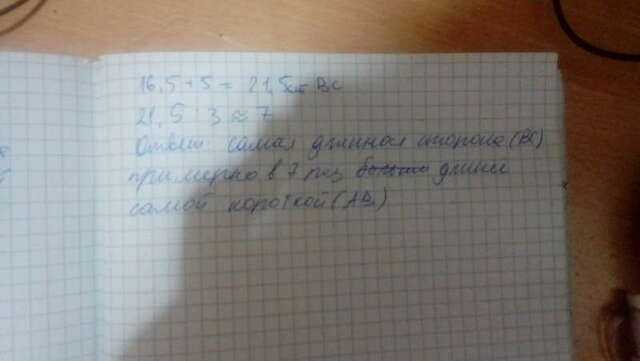 16,5 + 5 = 21,5см BC
21,5 : 3 ≈ 7
Ответ самая длинная сторона (BC)
примерно в 7 раз больше длине
самой короткой (AD)